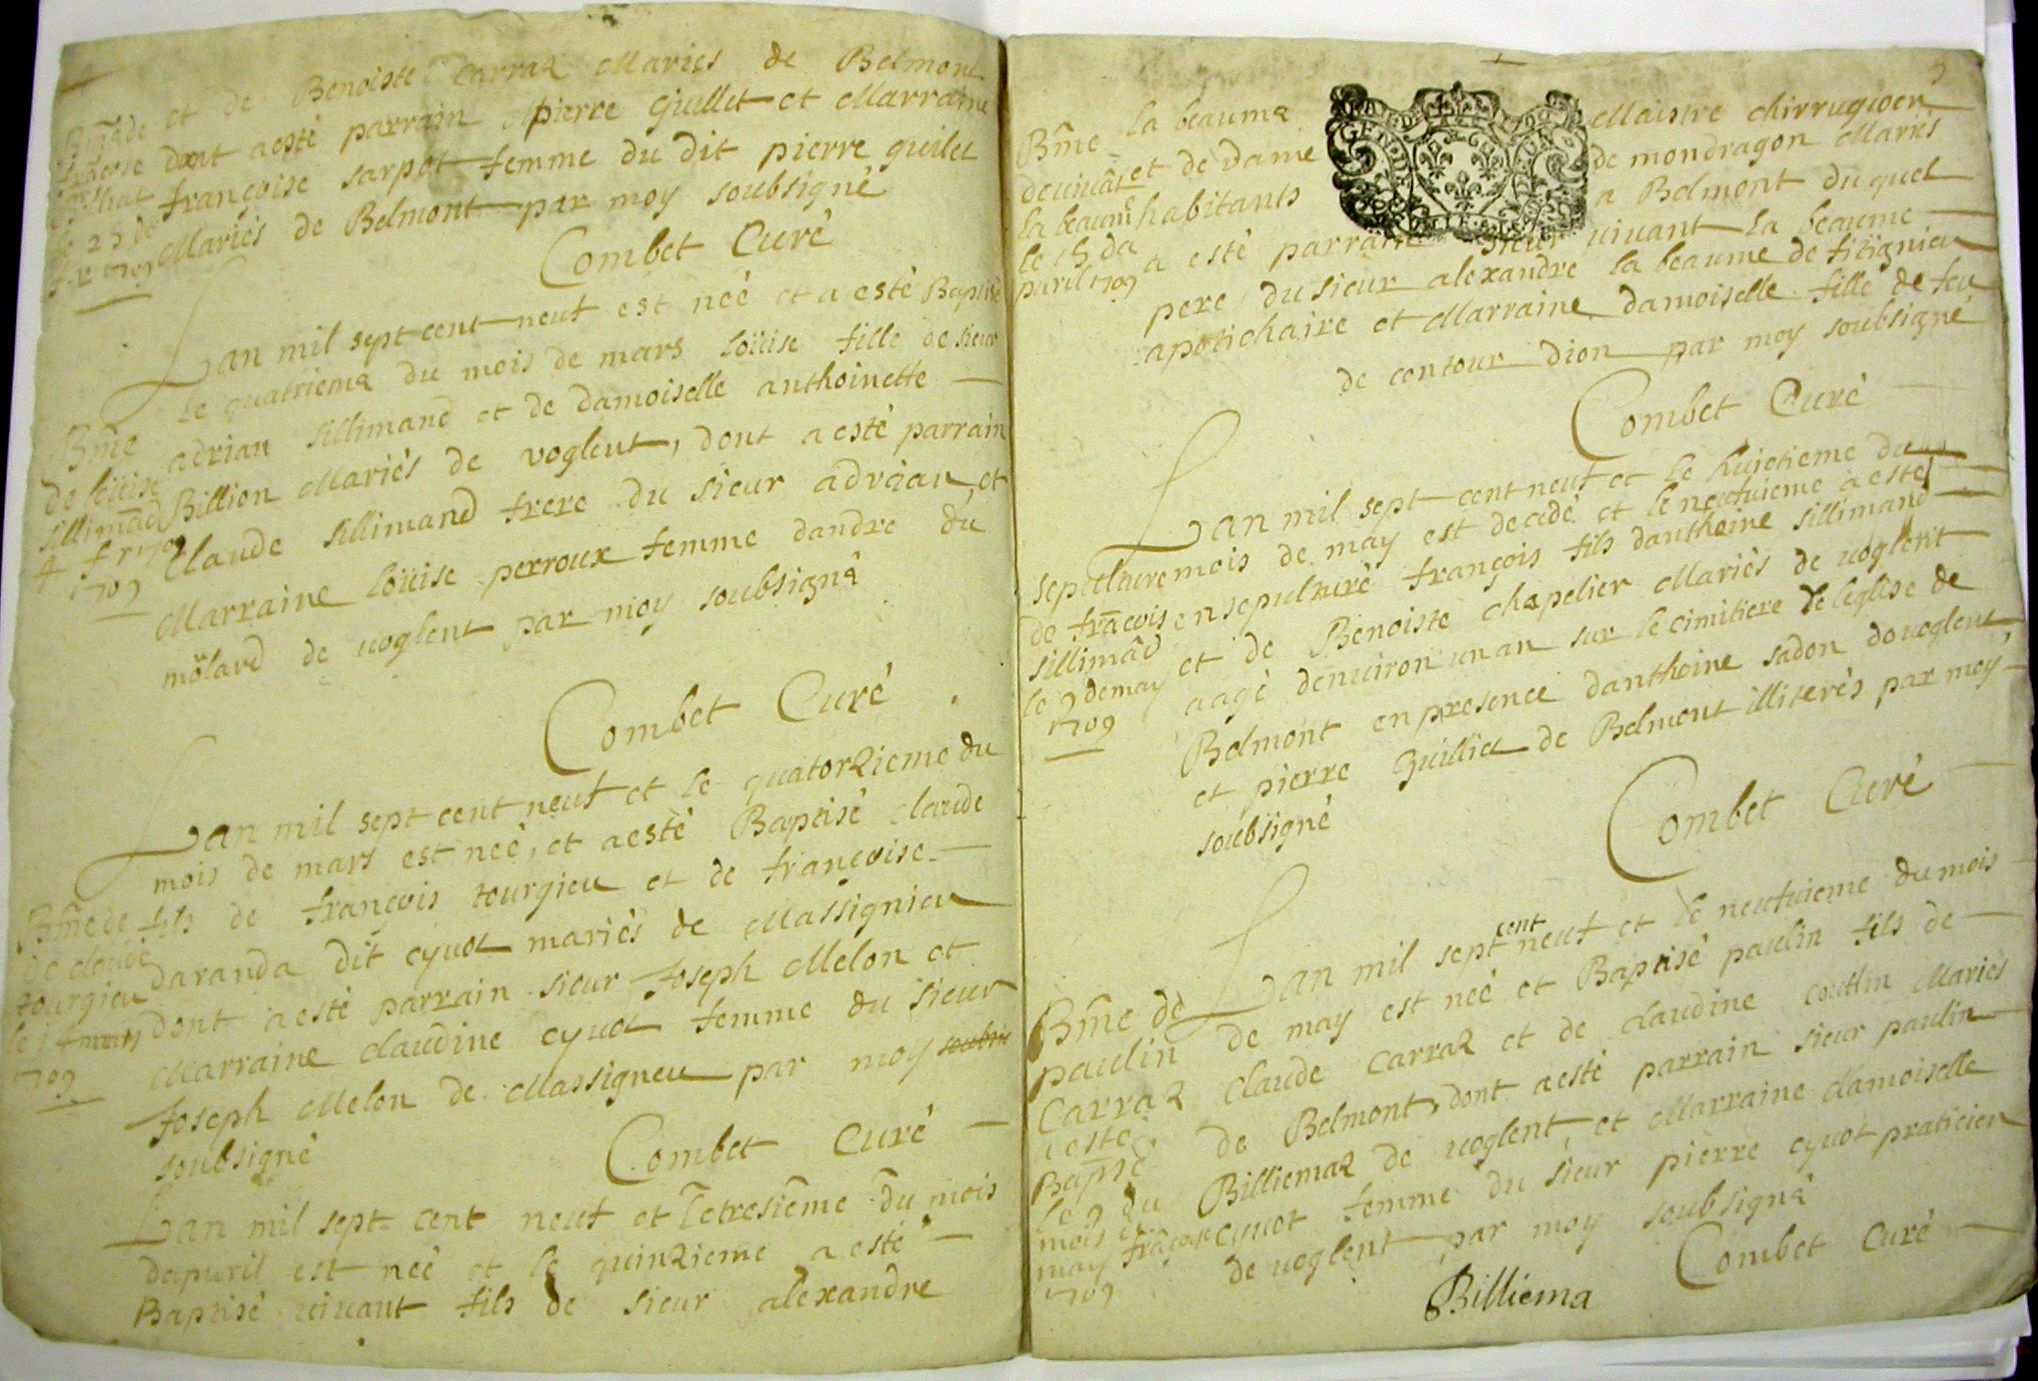 et de Benoiste Carraz Mariés de Belmont
dont a esté parrain pierre guillet et Marraine
françoise sarpot femme du dit pierre guilet
Mariés de Belmont par moy soubsigné
Combet Curé
le 25 de
1709
Lan mil sept cent neuf est néé et a esté Baptisé
le quatrieme du mois de mars loüise fille de sieur
adrian sillimand et de damoiselle anthoinette
Billion Mariés de voglent, dont a esté parrain
Claude sillimand frere du sieur adrian, et
Marraine loüise perroux femme dandre du
molard de uoglent par moy soubsigné
Combet Curé
Bme
de loüise
sillimãd
1709
Lan mil sept cent neuf et le quatorzieme du
mois de mars est néé, et a esté Baptisé claude
fils de françois tourgieu et de françoise
daranda dit cyuot mariés de Massignieu
dont a esté parrain sieur Joseph Melon et
Marraine claudine cyuot femme du sieur
Joseph Melon de Massigneu par moy
soubsigné
Combet Curé
Bme de
de claude
tourgieu
le 14 mars
1709
Lan mil sept cent neuf et le tresieme du mois
dapuril est néé et le quinzieme a esté
Baptisé uiuant fils de sieur alexandre
la beaume Maistre chirrugien
et de dame de mondragon Mariés
habitants a Belmont duquel
a esté parrain sieur uiuant la beaume
pere du sieur alexandre la beaume de
apotichaire et Marraine damoiselle fille de feu
de contour dion par moy soubsigné
Combet Curé
Bme
de uiuãt
la beaume
le 15 da
puril 1709
Lan mil sept cent neuf et le huictieme du
mois de may est decedé et le neufuieme a esté
ensepulturé françois fils danthoine sillimand
et de Benoiste chapelier Mariés de uoglent
aagé denuiron un an sur le cimitiere de leglise de
Belmont en presence danthoine sadon de uoglent,
et pierre guilliet de Belmont illiterés par moy
soubsigné
Combet Curé
sepulture
de frãcois
sillimãd
le 9 de may
1709
Lan mil sept cent neuf et le neufuieme du mois
de may est néé et Baptisé paulin fils de
Claude Carraz et de claudine coutlin Mariés
de Belmont, dont a esté parrain sieur paulin
Billiemaz de uoglent, et Marraine damoiselle
françoise cyuot femme du sieur pierre cyuot praticien
de uoglent par moy soubsigné
Combet Curé
Billiema
Bme de
paulin
Carraz
a esté
Bapsé
le 9 du
mois de
may
1709